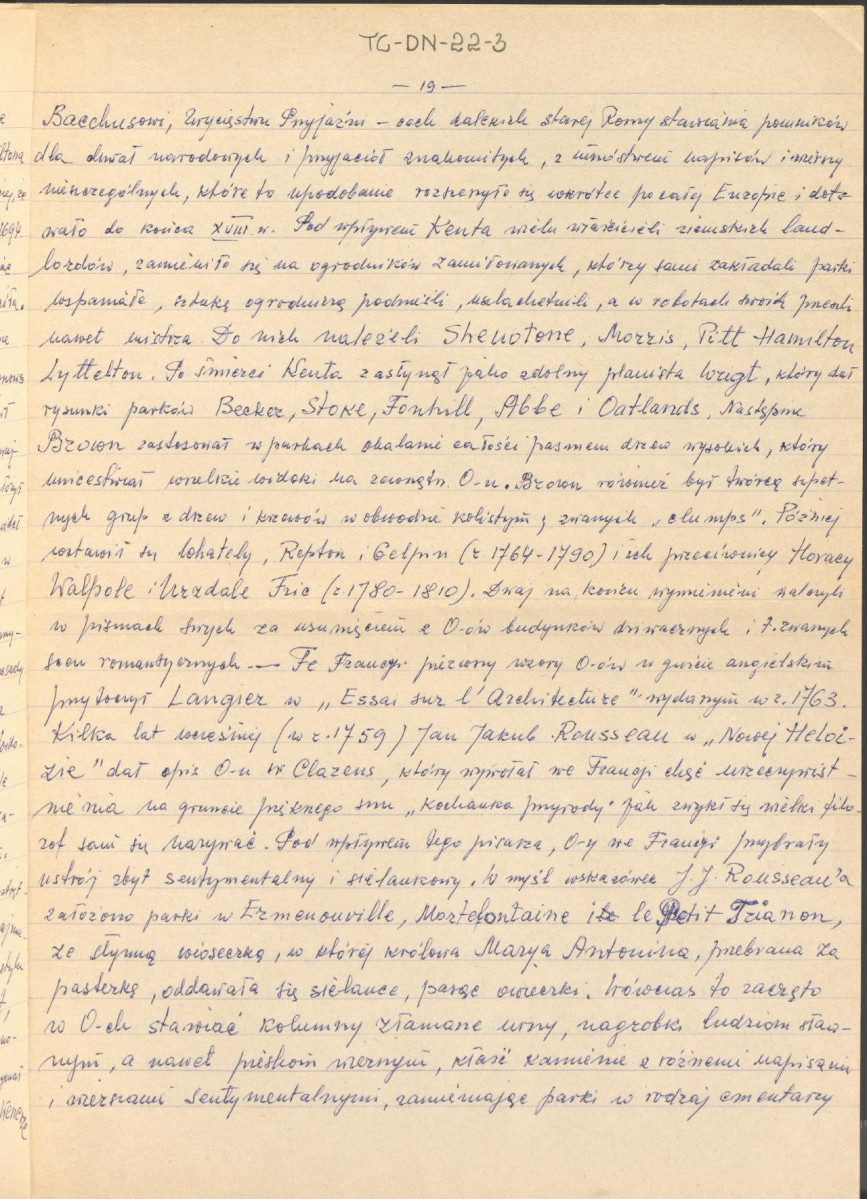 TG-DN-22-3
— 19 —
Bacchusowi, Zwycięstwu Przyjaźni – cech dalekich starej Romy stawiania pomników
dla chwał narodowych i przyjaciół znakomitych, z mnóstwem napisów i wierszy
nieszczególnych, które to upodobanie rozszerzyło się wkrótce po całej Europie i dotr-
wało do końca XVIII w. Pod wpływem Kenta wielu właścicieli ziemskich land-
lordów, zamieniło się na ogrodników zamiłowanych, którzy sami zakładali parki
wspaniałe, sztukę ogrodniczą podnieśli, uszlachetnili, a w robotach swoich przeszli
nawet mistrza. Do nich należeli Shenotone, Morris, Pitt Hamilton
Lyttelton. Po śmierci Kenta zasłynął jako zdolny planista Wrigt, który dał
rysunki parków Becker, Stoke, Fonhill, Abbe i Oatlands. Następnie
Brown zastosował w parkach okalanie całości pasmem drzew wysokich, który
unicestwiał wszelkie widoki na zewnątrz O-u. Brown również był twórcą szpet-
nych grup z drzew i krzewów w obwodzie kolistym, zwanych „clumps". Później
wstawili się Whately, Repton i Gelpin (r. 1764-1790) i ich przeciwnicy Horacy
Walpole i Urzdale Fric (r. 1780-1810). Dwaj na końcu wymienieni walczyli
w pismach swych za usunięciem z O-ów budynków dziwacznych i t. zwanych
scen romantycznych. — Fe Francyi pierwszy wzory O-ów w guście angielskim
przytoczył Langier w „Essai sur l'Architecture" wydanym w r. 1763.
Kilka lat wcześniej (w r. 1759) Jan Jakub Rousseau w „Nowej Heloi-
zie" dał opis O-u w Clarens, który wywołał we Francji chęć urzeczywist-
nienia na gruncie pięknego snu „Kochanka przyrody" jak zwykł się wielki filo-
zof sam się nazywać. Pod wpływem tego pisarza, O-y we Francji przybrały
ustrój zbyt sentymentalny i sielankowy. W myśl wskazówek J. J. Rousseau'a
założono parki w Ermenonville, Mortefontaine i le Petit Trianon,
ze słynną wioseczką, w której królowa Marya Antonina, przebrana za
pasterkę, oddawała się sielance, pasąc owieczki. Wówczas to zaczęto
w O-ch stawiać kolumny złamane urny, nagrobki ludziom sław-
nym, a nawet pieskom wiernym, kłaść kamienie z różnemi napisami
i wierszami sentymentalnymi, zamieniając parki w rodzaj cmentarzy